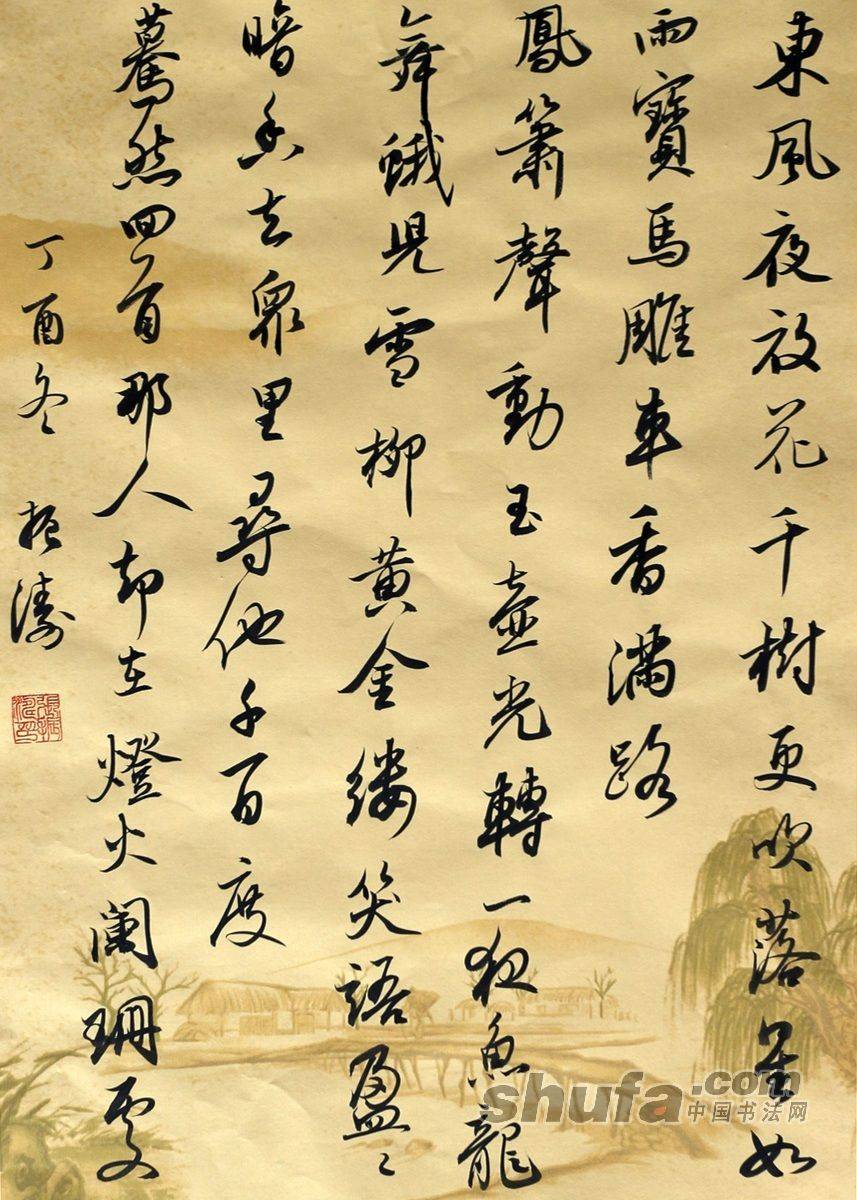 東風夜放花千樹更吹落星如
雨寶馬雕車香滿路
鳳簫聲動玉壺光轉一夜魚龍
舞蛾兒雪柳黃金縷笑語盈々
暗香去眾里尋他千百度
驀然回首那人却在燈火闌珊處
丁酉冬 振濤
shufa.com
中国书法网